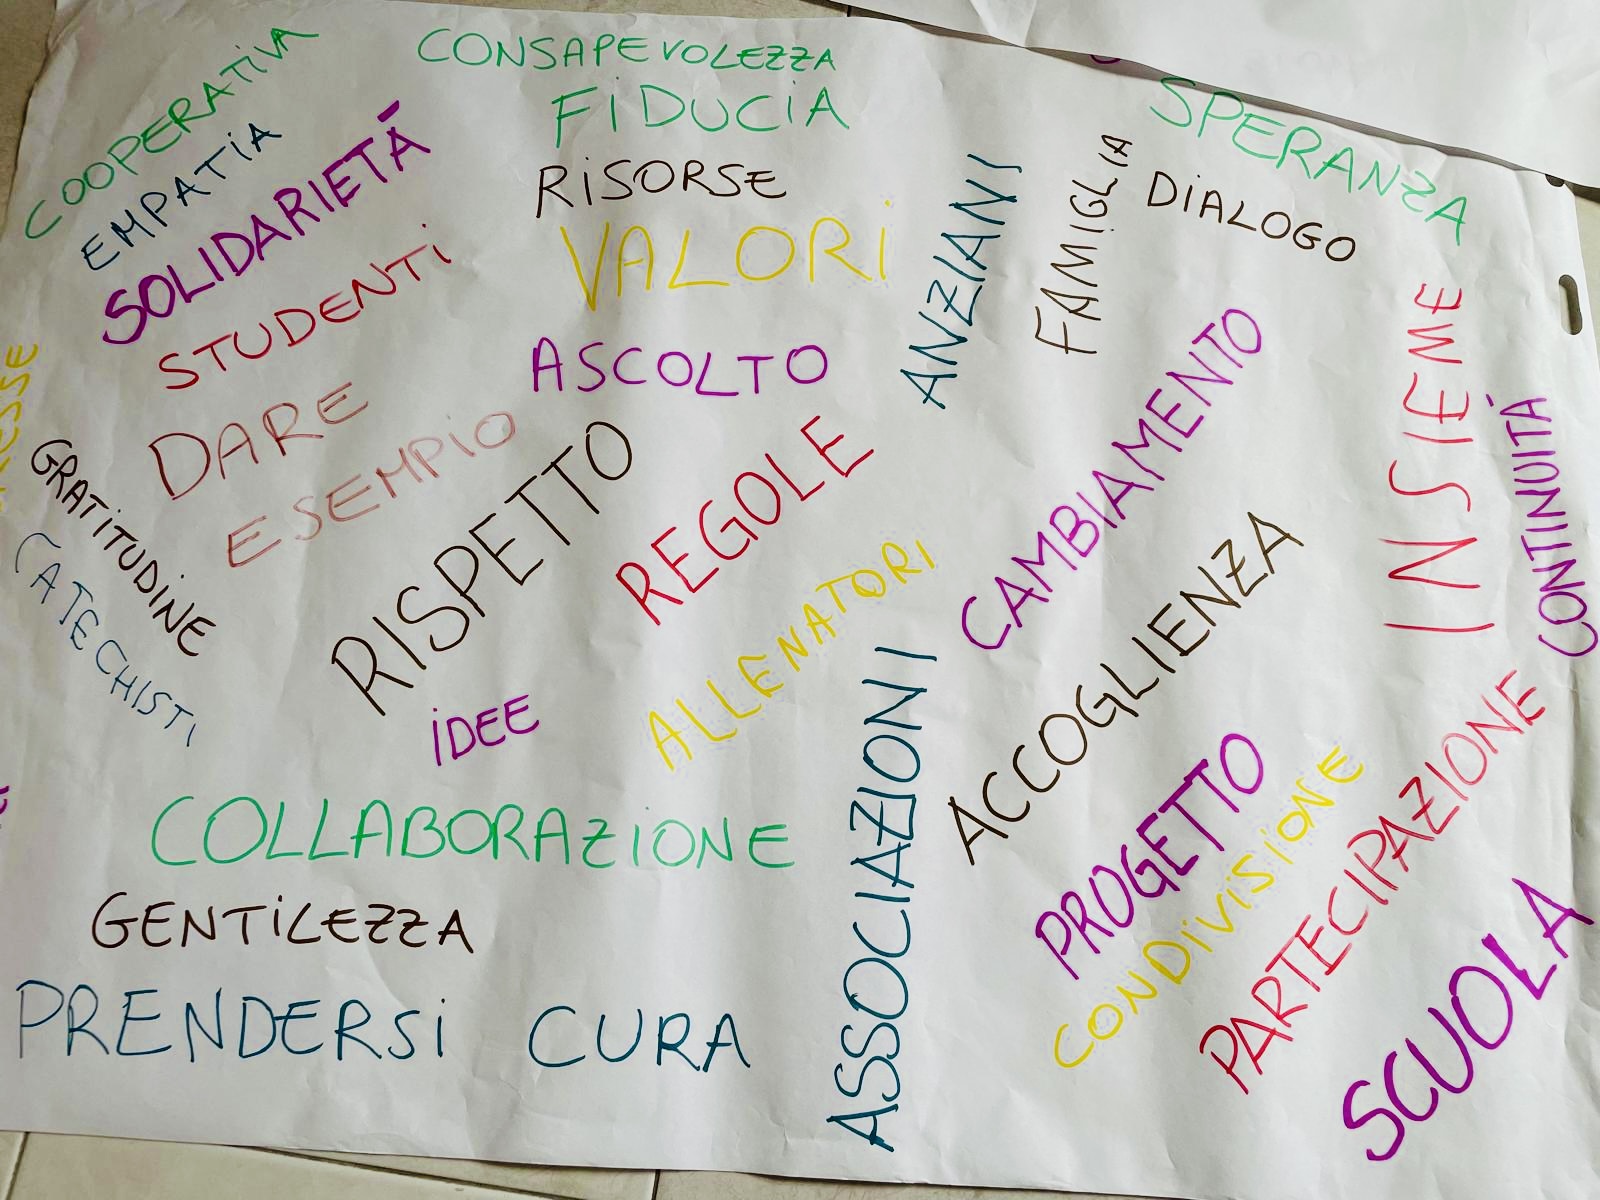 COOPERATIVA
EMPATIA
SOLIDARIETÀ
STUDENTI
DARE
ESEMPIO
GRATITUDINE
CATECHISTI
CONSAPEVOLEZZA
FIDUCIA
RISORSE
VALORI
ASCOLTO
RISPETTO
REGOLE
IDEE
ALLENATORI
COLLABORAZIONE
GENTILEZZA
PRENDERSI CURA
ANZIANI
FAMIGLIA
SPERANZA
DIALOGO
CAMBIAMENTO
INSIEME
CONTINUITÀ
ACCOGLIENZA
ASSOCIAZIONI
PROGETTO
CONDIVISIONE
PARTECIPAZIONE
SCUOLA